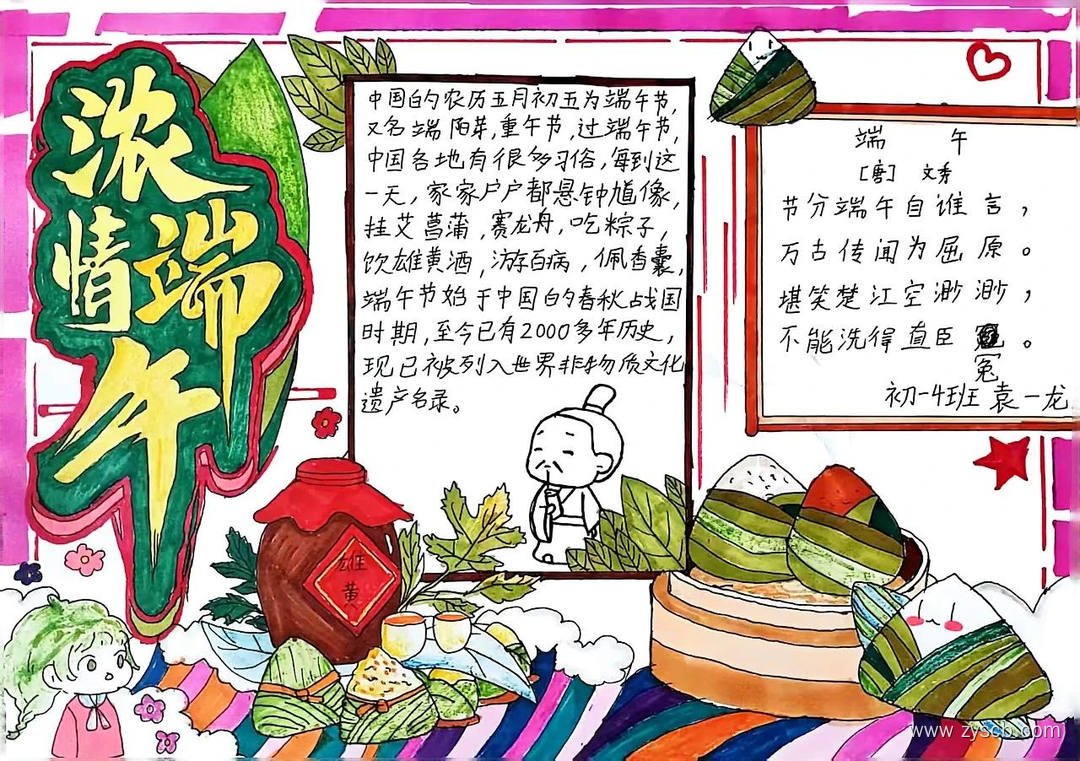 浓情端午
中国的农历五月初五为端午节，
又名端阳节，重午节，过端午节，
中国各地有很多习俗，每到这
一天，家家户户都悬钟馗像，
挂艾菖蒲，赛龙舟，吃粽子，
饮雄黄酒，游百病，佩香囊，
端午节始于中国的春秋战国
时期，至今已有2000多年历史，
现已被列入世界非物质文化
遗产名录。
端 午
[唐] 文秀
节分端午自谁言，
万古传闻为屈原。
堪笑楚江空渺渺，
不能洗得直臣 。
冤
初一4班 袁一龙
雄
黄
www.zyscb.com